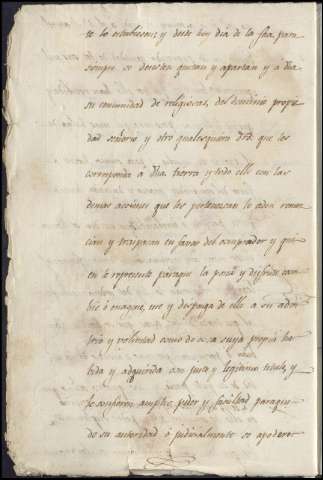 te lo establecen; y desde hoy dia de la fha para
siempre se desisten quitan y apartan y a dha
su comunidad de religiosas, del dominio propie
dad señorio y otro qualesquiera dro. que les
corresponda á dha tierra y todo ello con las
demas acciones que les pertenezcan lo ceden renun
cian y traspasan en favor del comprador y qui
en le represente paraque la posea y disfrute cam
bie ó enagene, use y disponga de ella a su
y voluntad como de cosa suya propia ha
vida y adquirida con justo y legitimo titulo, y
le confieren amplio poder y facultad paraque
de su autoridad ó judicialmente se apodere